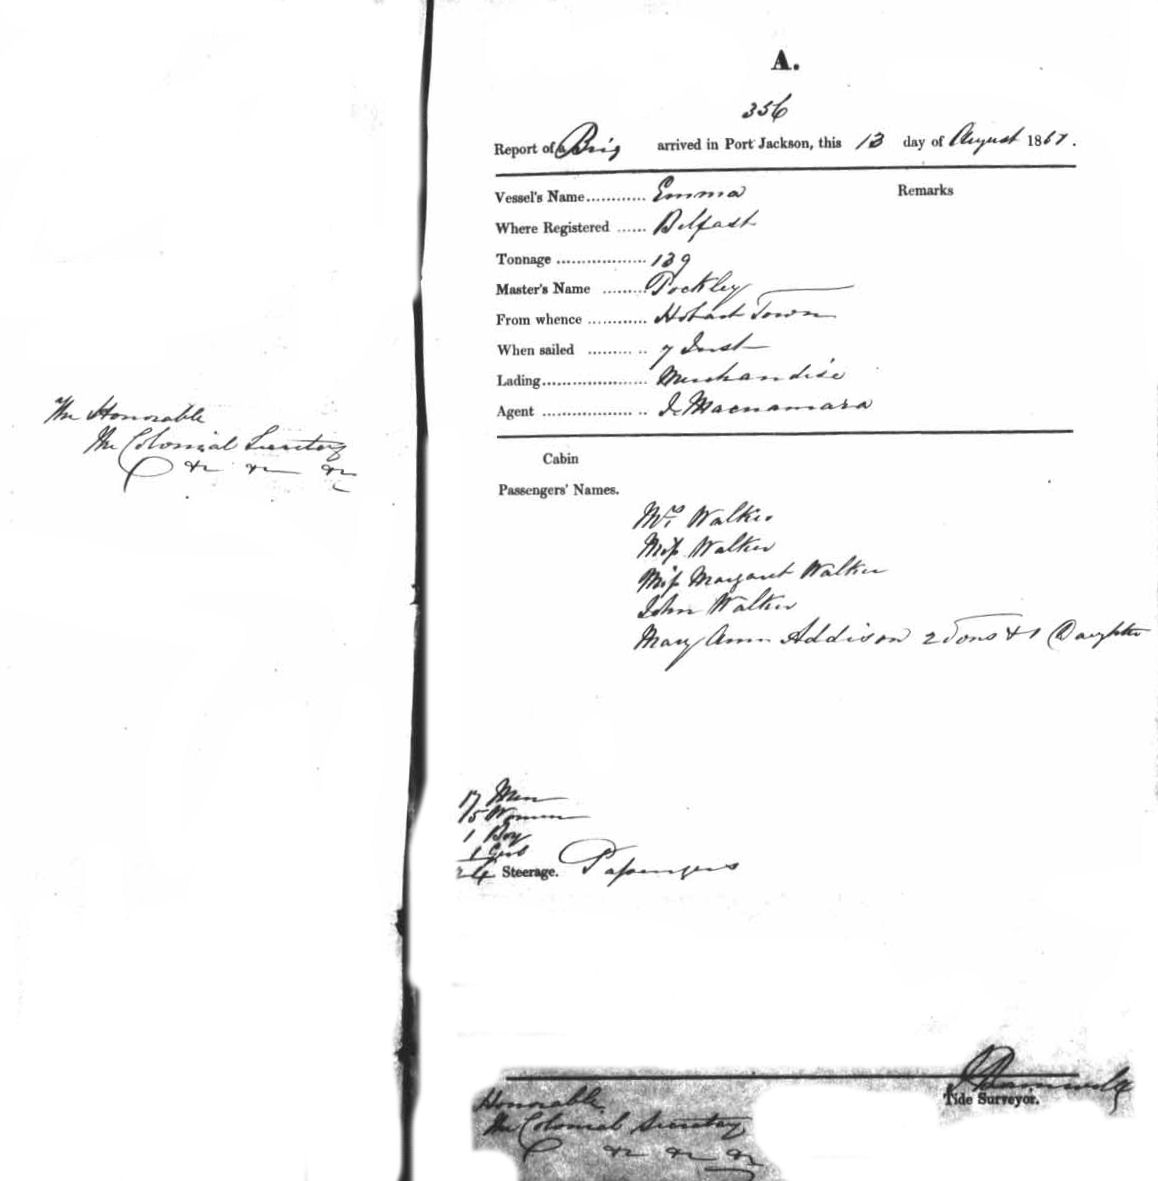 The Honorable
The Colonial Secretary
&c &c &c
A.
356
Report of a Brig arrived in Port Jackson, this 13 day of August 1867.
Vessel's Name............ Emma Remarks
Where Registered ...... Belfast
Tonnage .................. 139
Master's Name ......... Pockley
From whence ............ Hobart Town
When sailed ......... .. 7 Inst
Lading..................... Merchandise
Agent .................. .. Macnamara
Cabin
Passengers' Names.
Mrs Walker
Miss Walker
Miss Margaret Walker
John Walker
Mary Ann Addison 2 Sons & 1 Daughter
17 Men
5 Women
1 Boy
1 Girl
24 Steerage. Passengers
Tide Surveyor.
Honorable
The Colonial Secretary
&c &c &c